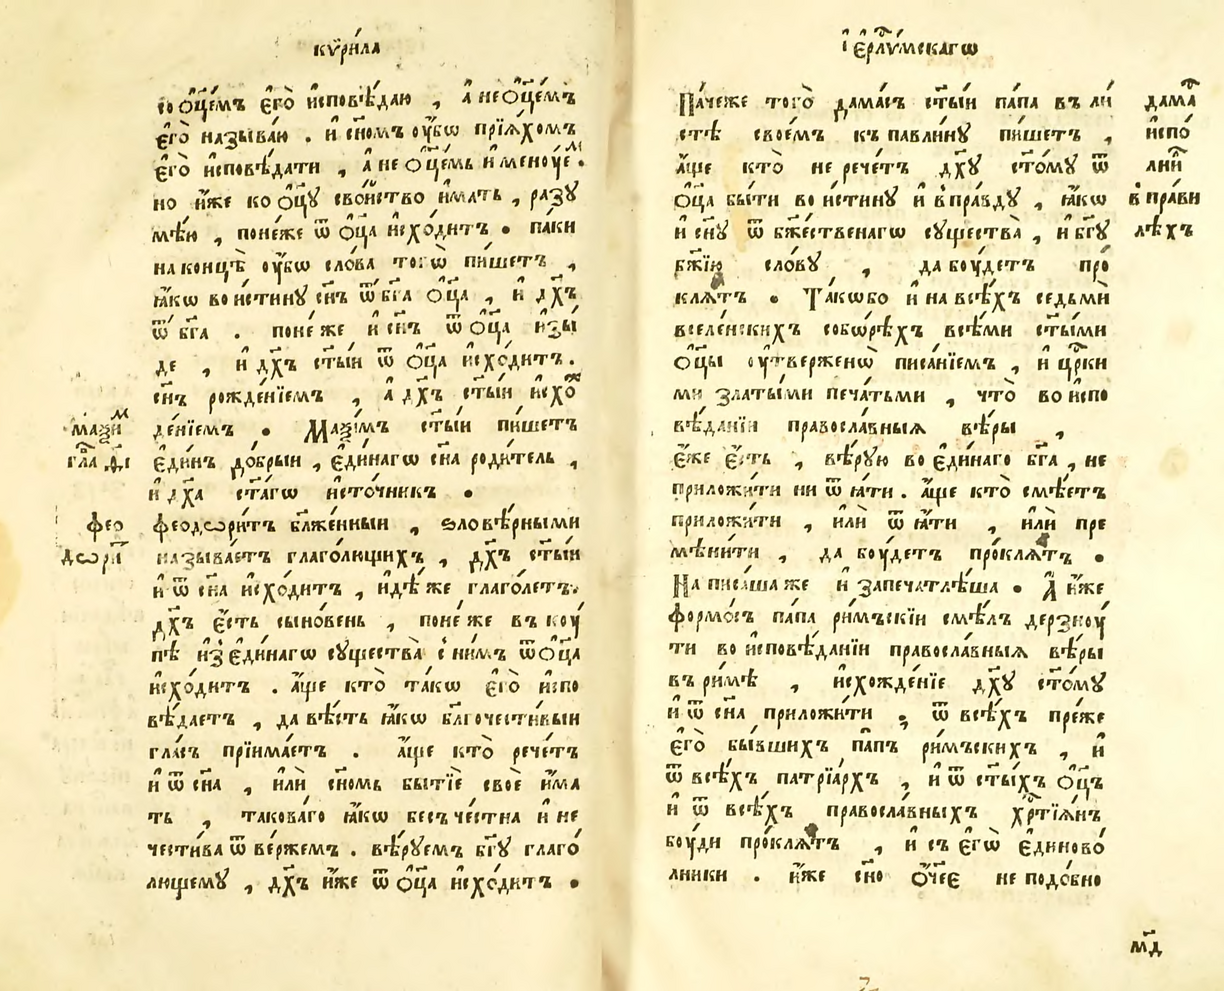 кѷри́ла
со ѻц҃е́мъ є҆го̀ и҆сповѣ́даю , а҆ не ѻ҆ц҃е́мъ
є҆го̀ называ́ю . и҆ сн҃омъ оу҆́бѡ прїѧ́хомъ
є҆го̀ и҆сповѣ́дати , а҆ не ѻ҆ц҃е́мь и҆менꙋ́е м .
но и҆́же ко ѻ҆ц҃ꙋ сво́йство и҆мать , разꙋ
мѣ́ю , поне́же ѿ ѻ҆ц҃а и҆схо́дитъ . па́ки
на концѣ̀ оу҆́бѡ сло́ва того̀ пи́шетъ ,
ꙗ҆́кѡ во и҆́стинꙋ сн҃ъ ѿ бг҃а ѻ҆ц҃а , и҆ дх҃ъ
ѿ бг҃а . поне́же и҆ сн҃ъ ѿ ѻ҆ц҃а и҆зы́
де , и҆ дх҃ъ ст҃ы́и ѿ ѻ҆ц҃а и҆схо́дитъ .
сн҃ъ рожде́нїемъ , а҆ дх҃ъ ст҃ы́и и҆схо ж
де́нїемъ . Маѯі́мъ ст҃ы́и пи́шетъ
є҆ди́нъ до́брыи , є҆ди́нагѡ сн҃а роди́тель ,
и҆ дх҃а ст҃а́гѡ и҆сто́чникъ .
феодѡри́тъ бл҃же́нныи , ѕловѣ́рными
называ́етъ глаго́лющихъ , дх҃ъ ст҃ы́и
и҆ ѿ сн҃а и҆схо́дитъ , и҆дѣ́же глаго́летъ .
дх҃ъ є҆́сть сыно́вень , поне́же въ коу́
пѣ и҆з̾ є҆ди́нагѡ сꙋщества̀ с̾ ни́мъ ѿ ѻ҆ц҃а
и҆схо́дитъ . а҆́ще кто̀ та́кѡ є҆го̀ и҆спо
вѣ́даетъ , да вѣ́сть ꙗ҆́кѡ бл҃гочести́выи
гла́съ прїима́етъ . а҆́ще кто̀ рече́тъ
и҆ ѿ сн҃а , и҆лѝ сн҃омь бытїѐ своѐ и҆́ма
ть , такова́го ꙗ҆́кѡ бесъче́стна и҆ не
чести́ва ѿве́ржемъ . вѣ́рꙋемъ бг҃ꙋ глаго́
лющемꙋ , дх҃ъ и҆́же ѿ ѻ҆ц҃а и҆схо́дитъ .
маѯи м
гл҃а
фео
дѡри т
і҆єрл҃и́мскагѡ
Па́чеже того̀ дама́съ ст҃ы́и па́па въ ли
стѣ̀ свое́мъ къ павли́нꙋ пи́шетъ ,
а҆́ще кто̀ не рече́тъ дх҃ꙋ ст҃о́мꙋ ѿ
ѻ҆ц҃а бы́ти во и҆́стинꙋ и҆ в̾пра́вдꙋ , ꙗ҆́кѡ
и҆ сн҃ꙋ ѿ бж҃е́ственагѡ сꙋщества̀ , и҆ бг҃ꙋ
бж҃їю сло́вꙋ , да боу́детъ про́
клѧтъ . Та́кѡбо и҆ на всѣ́хъ седьмѝ
вселе́нскихъ собѡ́рѣхъ всѣ́ми ст҃ы́ми
ѻ҆ц҃ы оу҆тверженѡ̀ писа́нїемъ , и҆ цр҃ки
ми златы́ми печа́тьми , что̀ во и҆спо
вѣ́данїи правосла́вныѧ вѣ́ры ,
є҆́же є҆́сть , вѣ́рꙋю во є҆ди́наго бг҃а , не
приложи́ти ни ѿꙗ́ти . а҆́ще кто̀ смѣ́етъ
приложи́ти , и҆лѝ ѿꙗ́ти , и҆лѝ пре
мѣни́ти , да боу́детъ про́клѧтъ .
Написа́ша же и҆ запечатлѣ́ша . А҆ и҆́же
формо́съ па́па ри́мъскїи смѣ́лъ дерзноу́
ти во и҆сповѣ́данїи правосла́вныѧ вѣ́ры
въ ри́мѣ , и҆схожде́нїе дх҃ꙋ ст҃о́мꙋ
и҆ ѿ сн҃а приложи́ти ; ѿ всѣ́хъ пре́же
є҆го̀ бы́вшихъ па́пъ ри́мъскихъ , и҆
ѿ всѣ́хъ патрїа́рхъ , и҆ ѿ ст҃ы́хъ ѻ҆ц҃ъ
и҆ ѿ всѣ́хъ правосла́вныхъ хр҃тїѧ́нъ
боу́ди про́клѧтъ , и҆ съ є҆гѡ̀ є҆диново́
лники . и҆́же сн҃о ѻ҆ч҃ее не подо́бно
дама с
и҆спо́
лни
в̾ пра́ви
лѣхъ
мд҃